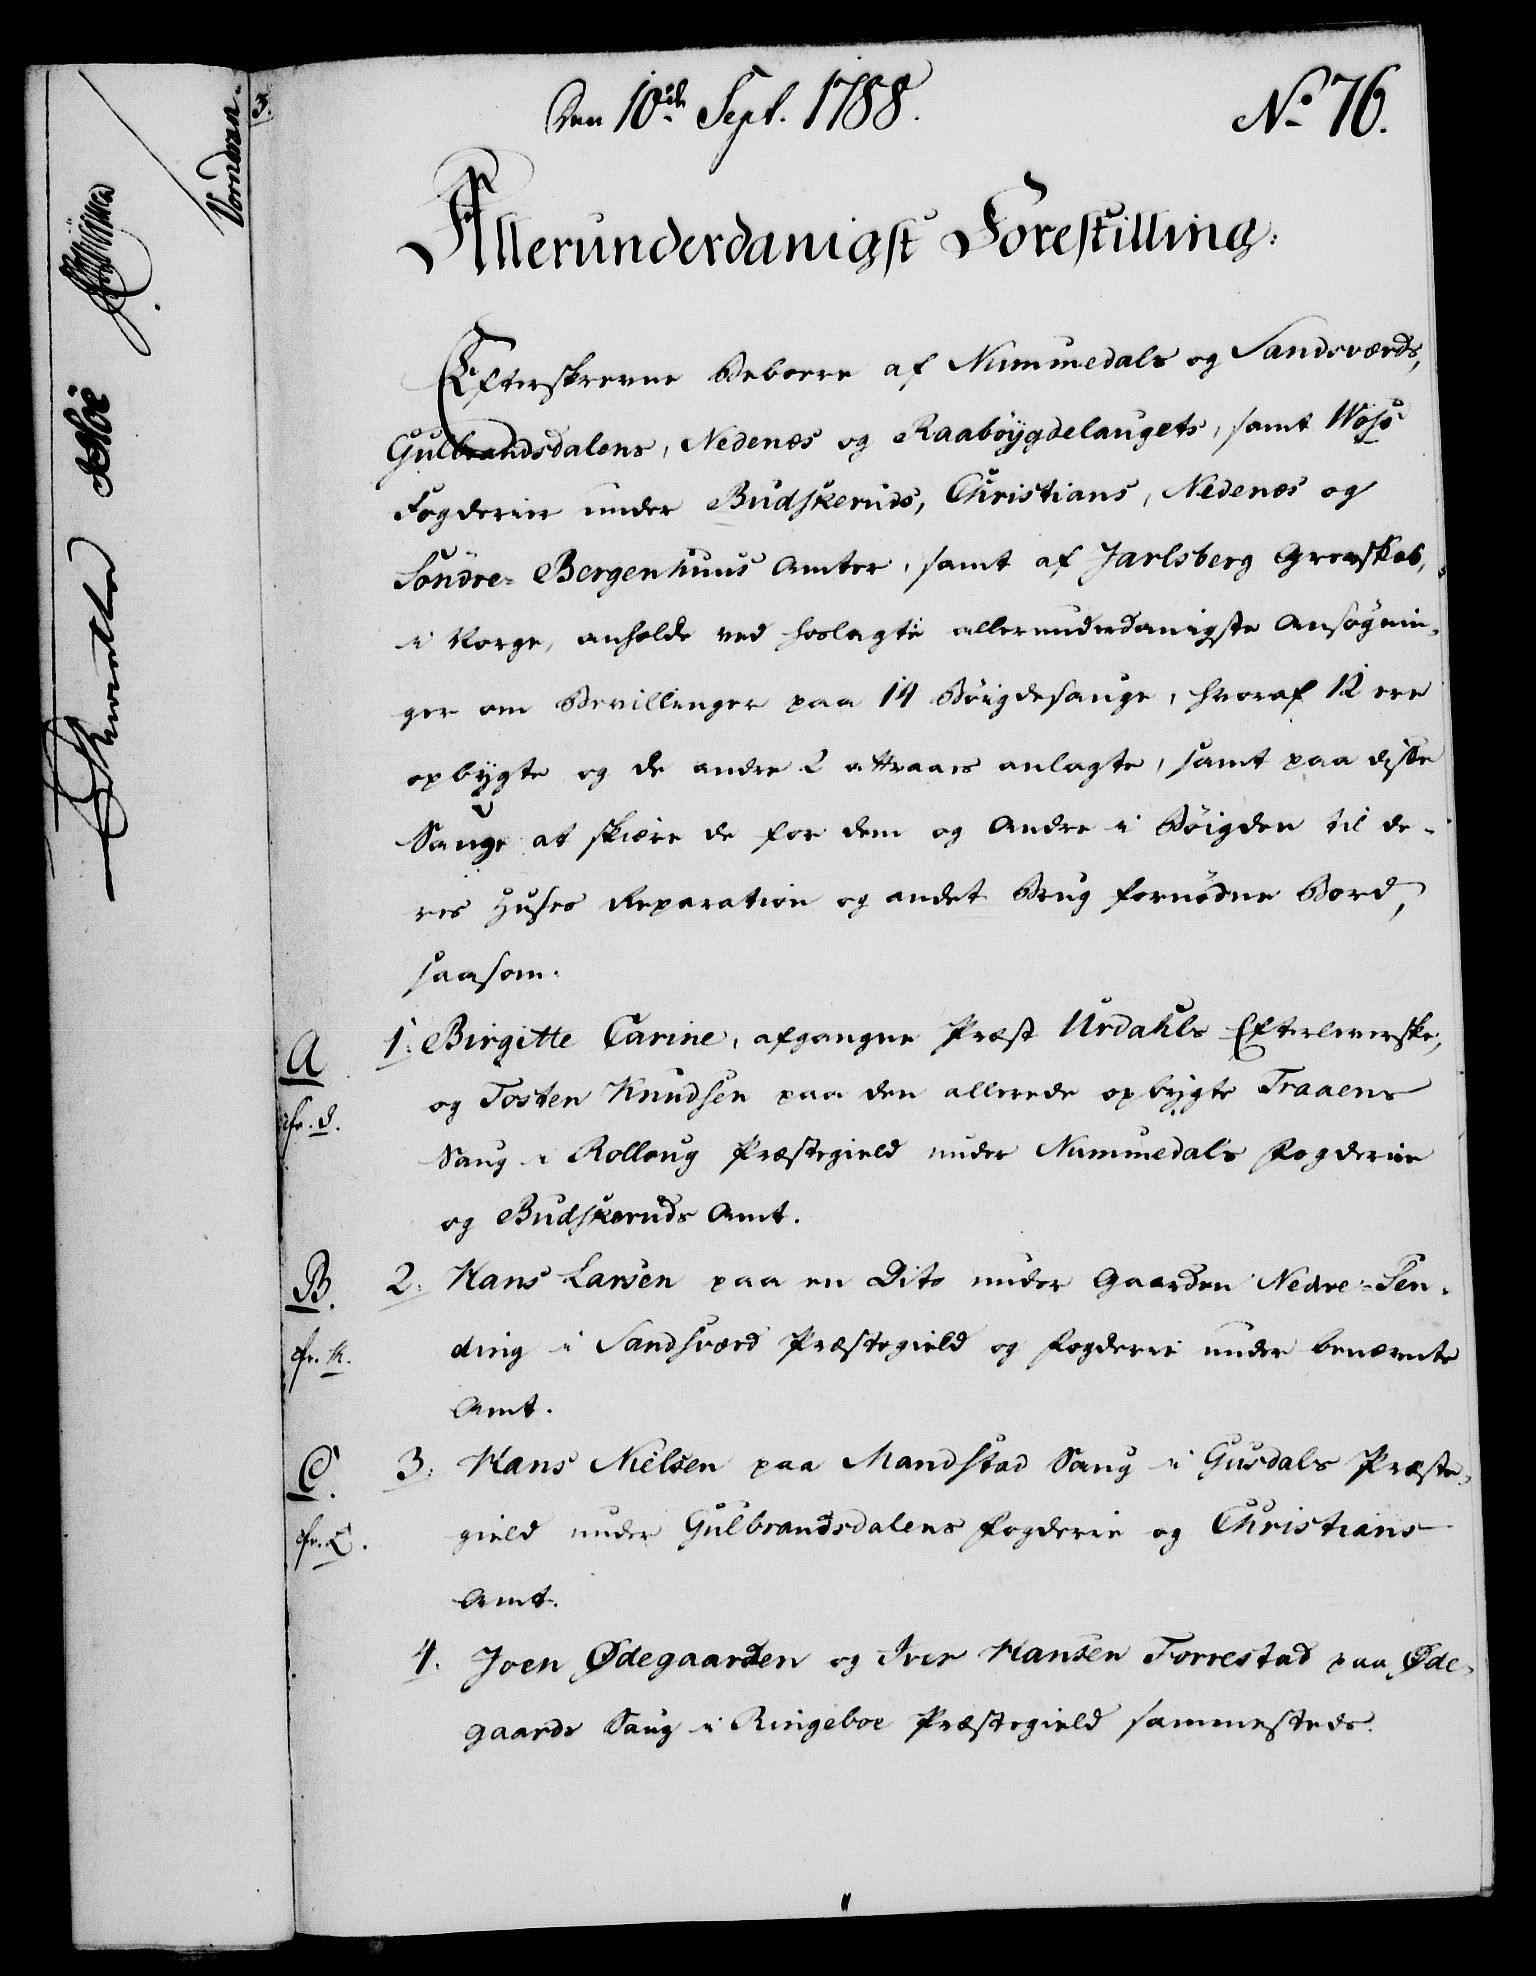 Den 10de Sept. 1788.
No 76.
Allerunderdanigst Forestilling:
Efterskrevne Beboere af Nummedals og Sandsværds,
Gulbrandsdalens, Nedenes og Raabÿgdelaugets, samt Woss
Fogderier under Budskeruds, Christians, Nedenes og
Söndre- Bergenhuus Amter, samt af Jarlsberg Grevskab,
i Norge, anholde ved hoslagte allerunderdanigste Ansøgnin-
ger om Bevillinger paa 14 Böigdesauge, hvoraf 12 ere
opbygte og de andre 2 attraaes anlagte, samt paa disse
Sauge at skiære de for dem og Andre i Böigden til de-
res Huses Reparation og andet Brug fornödne Bord,
saasom.
A 1. Birgitte Carine, afgangne Præst Urdahls Efterleverske,
og Tosten Knudsen paa den allerede opbygte Traaens
cfr. d.
Saug i Rolloug Præstegield under Nummedals Fogderie
og Budskeruds Amt.
B. 2. Hans Larsen paa en Dito under Gaarden Nedre-Ten-
cfr. K.
ding i Sandsværd Præstegield og Fogderie under benævnte
Amt.
C. 3. Hans Nielsen paa Mandstad Saug i Gusdals Præste-
cfr. L.
gield under Gulbrandsdalens Fogderie og Christians
Amt.
4. Joen Ødegaarden og Iver Hansen Forrestad paa Øde-
gaards Saug i Ringeboe Præstegield sammesteds.